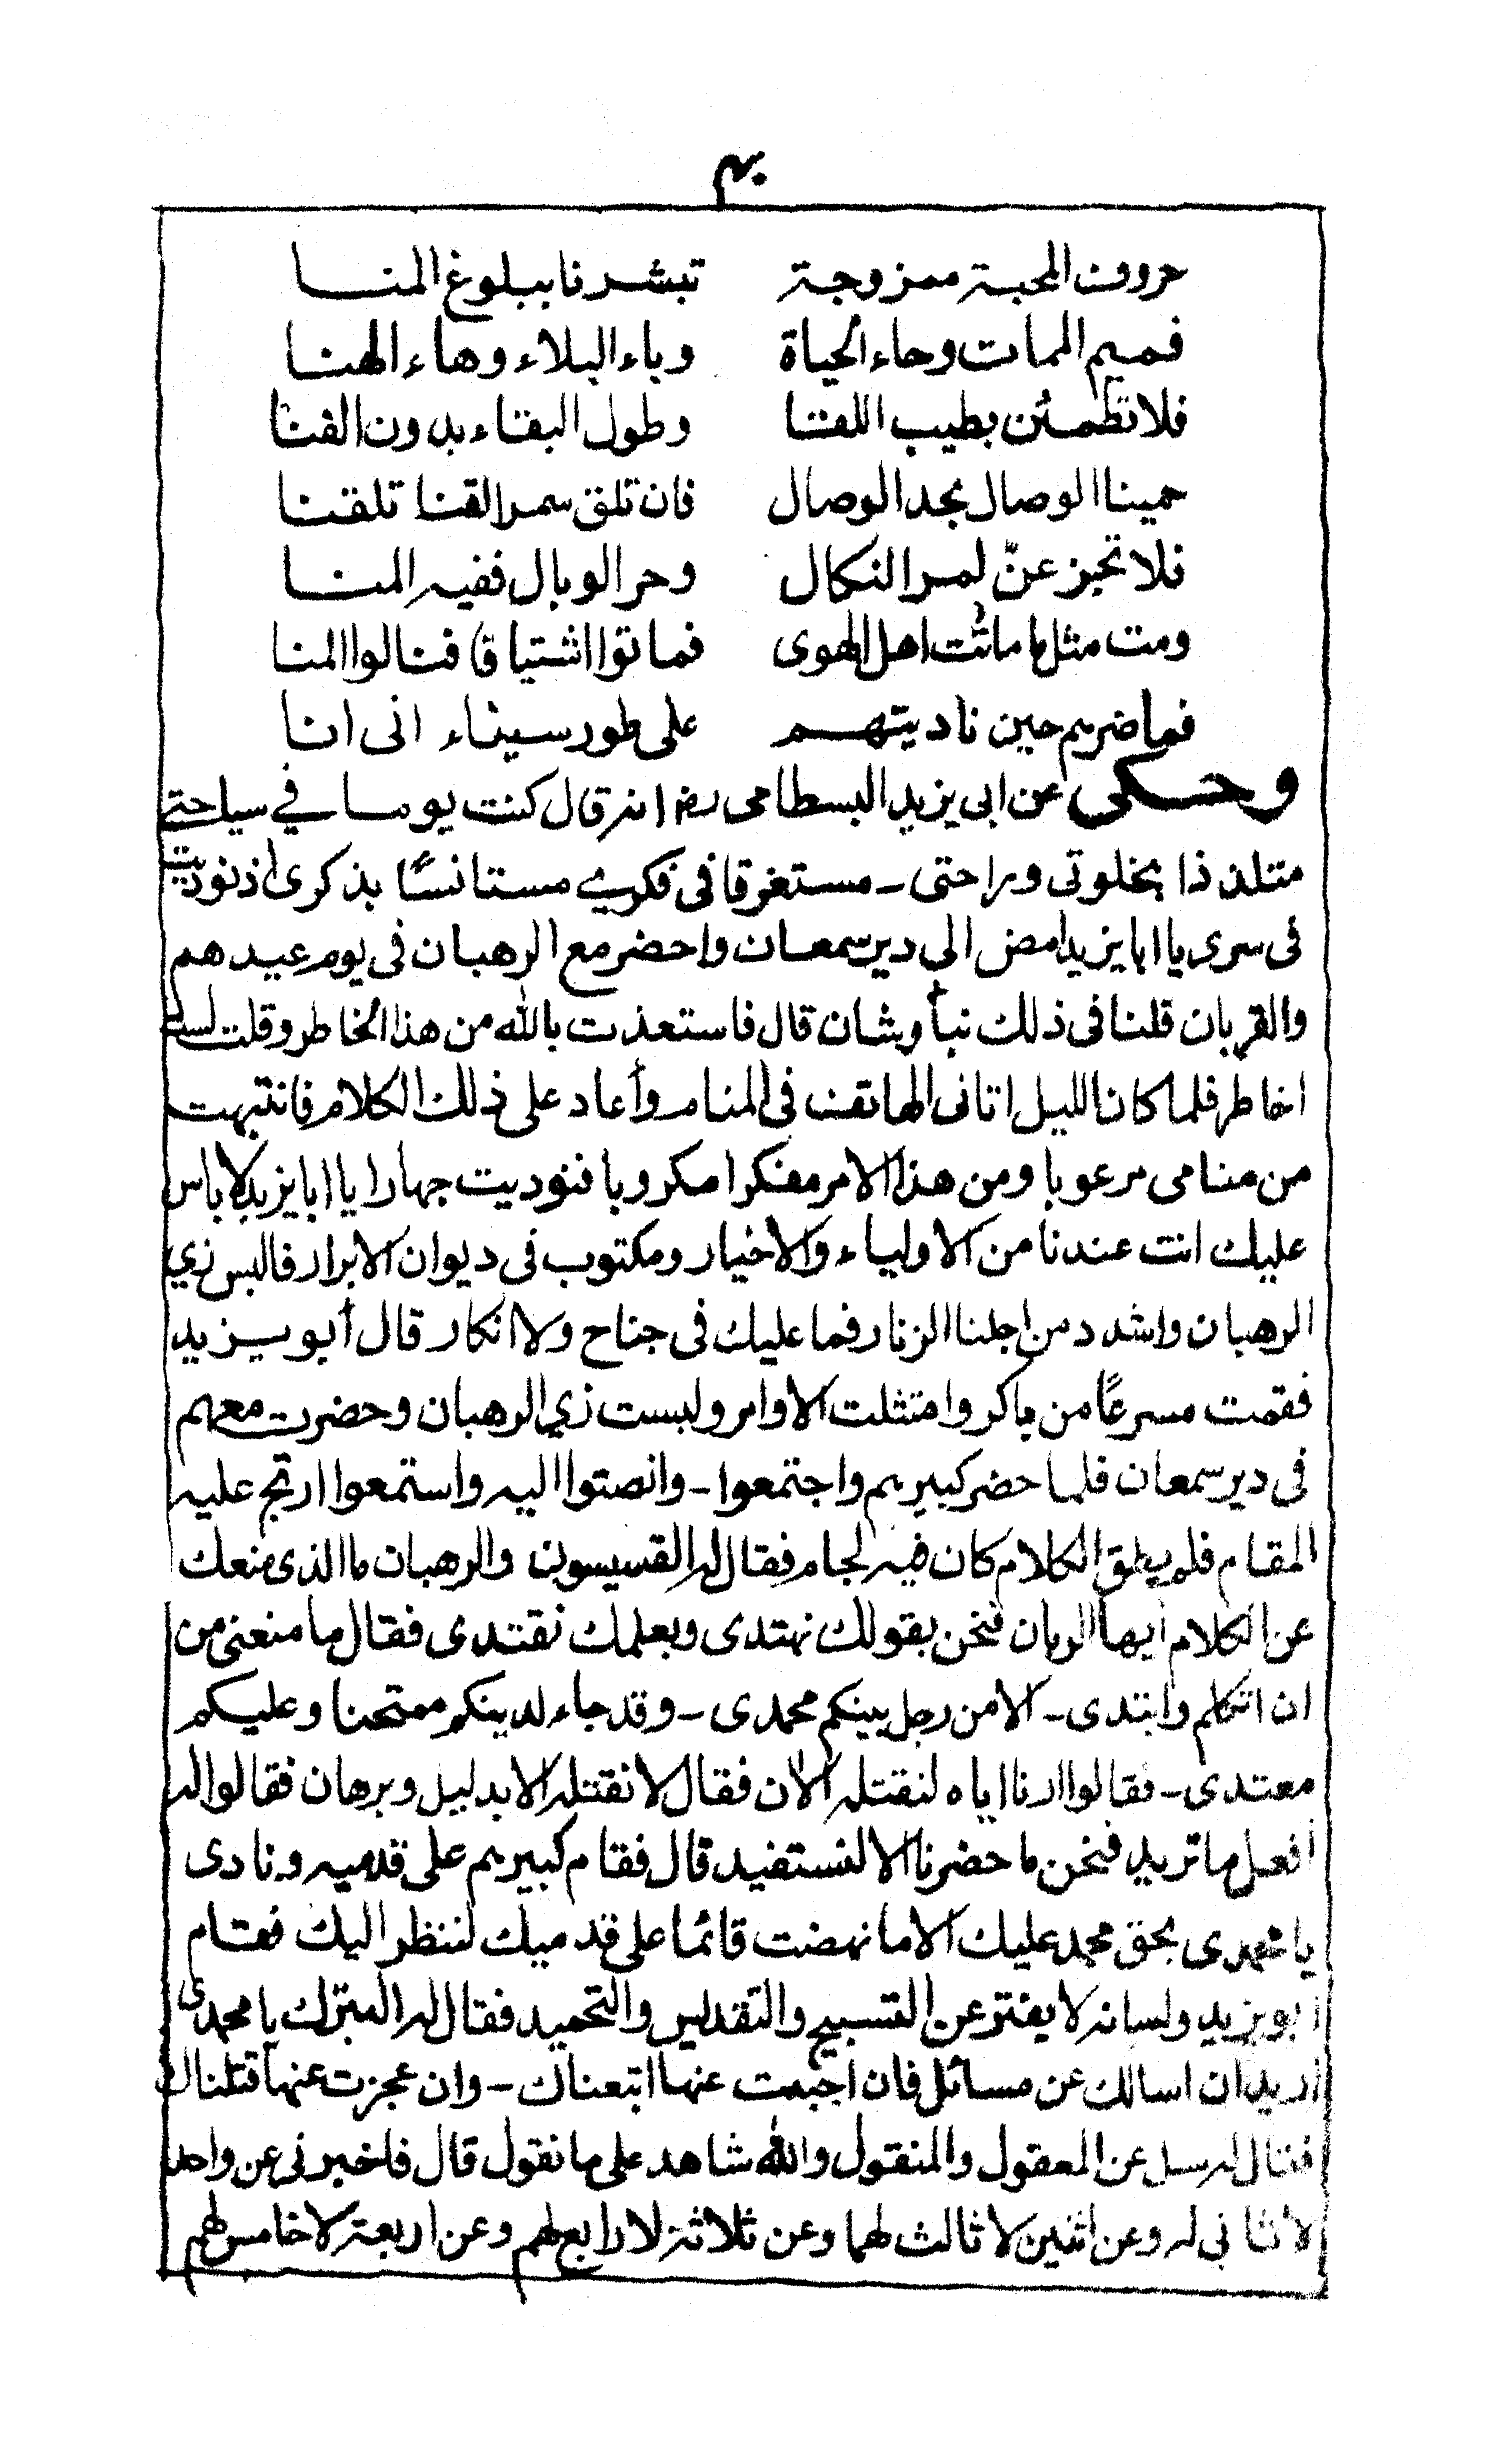 حروف المحبة ممزوجة تبشرنا ببلوغ المنا
فميم الممات وحاء الحياة وباء البلاء وهاء الهنا
فلا تطمئن بطيب اللقا وطول البقاء بدون الفنا
حمينا الوصال بحد الوصال فان تلق سمر القنا تلقنا
فلا تجزعنّ لمر النكال وحر الوبال ففيه المنا
ومت مثل ما ماتت اهل الهوى فماتوا اشتياقا فنالوا المنا
فما ضرهم حين ناديتهم على طور سيناء انى انا
وحكى عن ابى يزيد البسطامى رضه انه قال كنت يوما في سياحتي
متلذذا بخلوتى وراحتى - مستغرقا فى فكري مستانسًا بذكرى اذ نوديت
فى سرى يا ابا يزيد امض الى دير سمعان واحضر مع الرهبان فى يوم عيدهم
والقربان قلنا فى ذلك نبأ وشان قال فاستعذت بالله من هذا الخاطر وقلت لست
اخاطر فلما كان الليل اتانى الهاتف فى المنام وأعاد على ذلك الكلام فانتبهت
من منامى مرعوبا ومن هذا الامر مفكرا مكروبا فنوديت جهارا يا ابا يزيد لا باس
عليك انت عندنا من الاولياء والاخيار ومكتوب فى ديوان الابرار فالبس زي
الرهبان واشدد من اجلنا الزنار فما عليك فى جناح ولا انكار قال أبو يزيد
فقمت مسرعًا من باكر وامتثلت الاوامر ولبست زي الرهبان وحضرت معهم
فى دير سمعان فلما حضر كبيرهم واجتمعوا - وانصتوا اليه واستمعوا ارتج عليه
المقام فلم يطق الكلام كان فيه لجام فقال له القسيسون والرهبان ما الذى منعك
عن الكلام أيها الربان فنحن بقولك نهتدى وبعلمك نقتدى فقال ما منعنى من
ان اتكلم وابتدى - الا من رجل بينكم محمدى - وقد جاء لدينكم ممتحنا وعليكم
معتدى - فقالوا ارنا اياه لنقتله الان فقال لا نقتله الا بدليل وبرهان فقالوا له
أفعل ما تريد فنحن ما حضرنا الا لنستفيد قال فقام كبيرهم على قدميه ونادى
يا محمدى بحق محمد عليك الا ما نهضت قائما على قدميك لننظر اليك فقام
أبو يزيد ولسانه لا يفتر عن التسبيح والتقديس والتحميد فقال له البترك يا محمدى
أريد ان اسالك عن مسائل فان اجبت عنها اتبعناك - وان عجزت عنها قتلناك
فقال له سل عن المعقول والمنقول والله شاهد على ما نقول قال فاخبرنى عن واحد
لا ثانى له وعن اثنين لا ثالث لهما وعن ثلاثة لا رابع لهم وعن اربعة لا خامس لهم